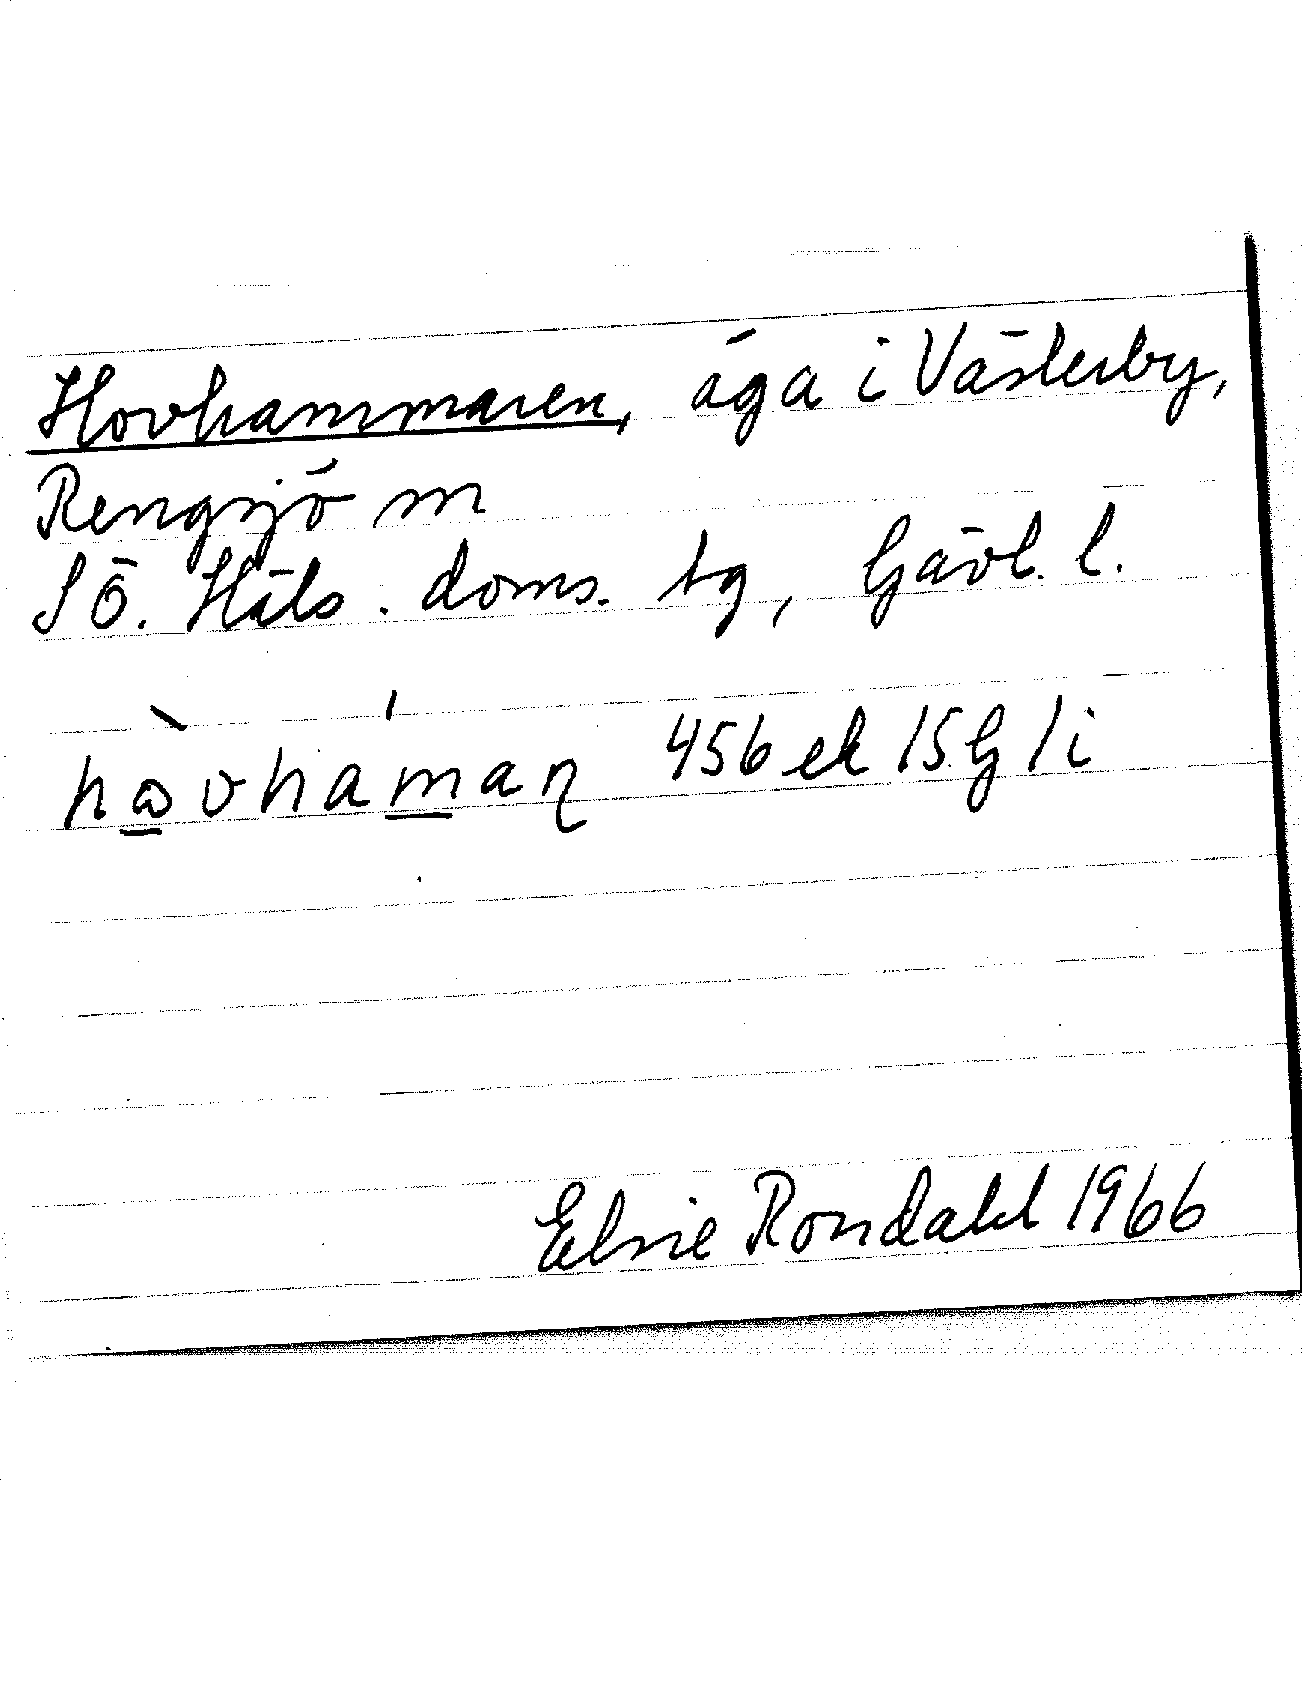 Hovhammaren, äga i Västerby,
Rengsjö sn
SÖ. Häls. doms. tg, Gävl. l.
hòvhámaɳ 456 ek 15G 1i
Elsie Rondahl 1966